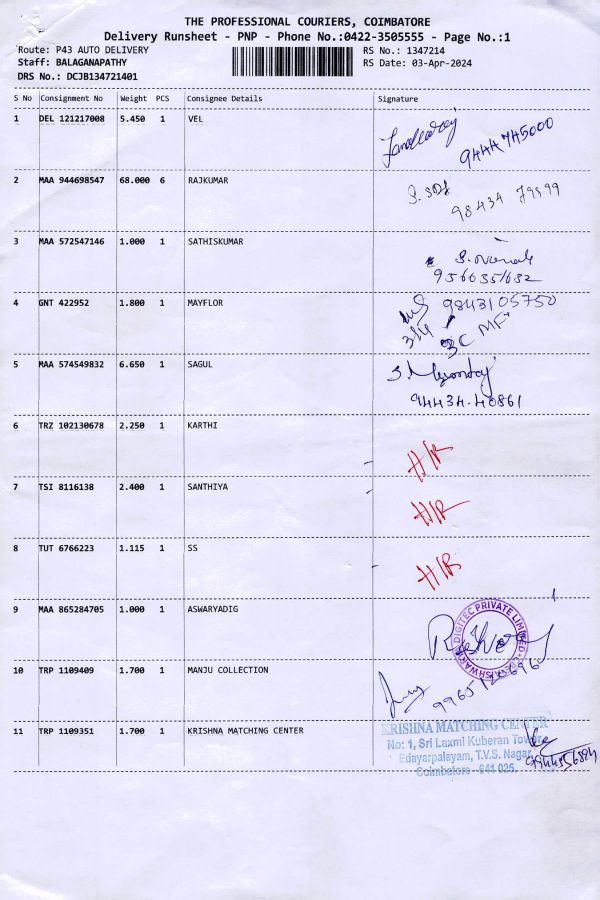 THE PROFESSIONAL COURIERS, COIMBATORE
Delivery Runsheet - PNP - Phone No.:0422-3505555 - Page No.:1
Route: P43 AUTO DELIVERY
RS No.: 1347214
Staff: BALAGANAPATHY
RS Date: 03-Apr-2024
DRS No.: DCJB134721401
S No Consignment No Weight PCS Consignee Details Signature
1 DEL 121217008 5.450 1 VEL
9444745000
2 MAA 944698547 68.000 6 RAJKUMAR
98434 79599
3 MAA 572547146 1.000 1 SATHISKUMAR
4 GNT 422952 1.800 1 MAYFLOR
9843105750
3/4
5 MAA 574549832 6.650 1 SAGUL
94434-40861
6 TRZ 102130678 2.250 1 KARTHI
H/R
7 TSI 8116138 2.400 1 SANTHIYA
H/R
8 TUT 6766223 1.115 1 SS
H/R
9 MAA 865284705 1.000 1 ASWARYADIG
DIGITEC PRIVATE LIMITED
10 TRP 1109409 1.700 1 MANJU COLLECTION
11 TRP 1109351 1.700 1 KRISHNA MATCHING CENTER
KRISHNA MATCHING CENTER
No: 1, Sri Laxmi Kuberan Tower,
Edayarpalayam, T.V.S. Nagar,
Coimbatore - 641 025.